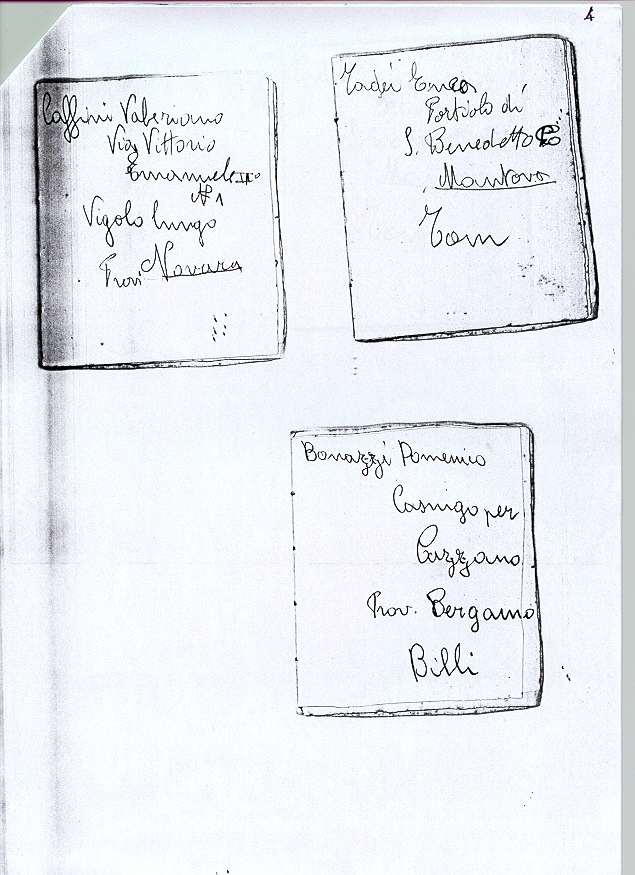 4
Caffini Valeriano
Via Vittorio
Emanuele III°
N° 1
Vigolo lungo
Prov Novara
Tadei Enea
Portiolo di
S. Benedetto Po
Mantova
Tom
Bonazzi Domenico
Casnigo per
Cazzano
Prov. Bergamo
Billi